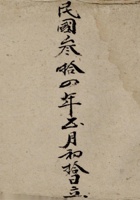 民國叁拾四年五月初拾日立